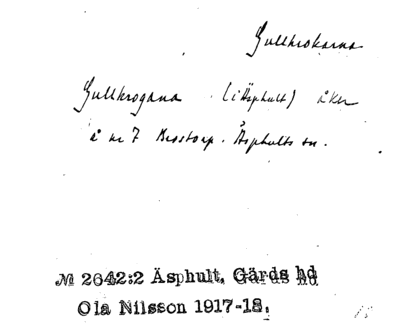 Gullkrokarna
Gullkrogana (i Äsphult) åker
å nr 7 Brostorp. Äsphults sn.
№ 2642:2 Äsphult, Gärds hd
Ola Nilsson 1917-18.